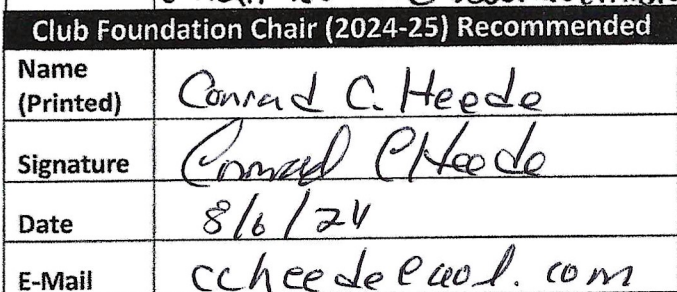 Club Foundation Chair (2024-25) Recommended
Name (Printed) Conrad C. Heede
Signature Conrad C Heede
Date 8/6/24
E-Mail ccheede@aol.com